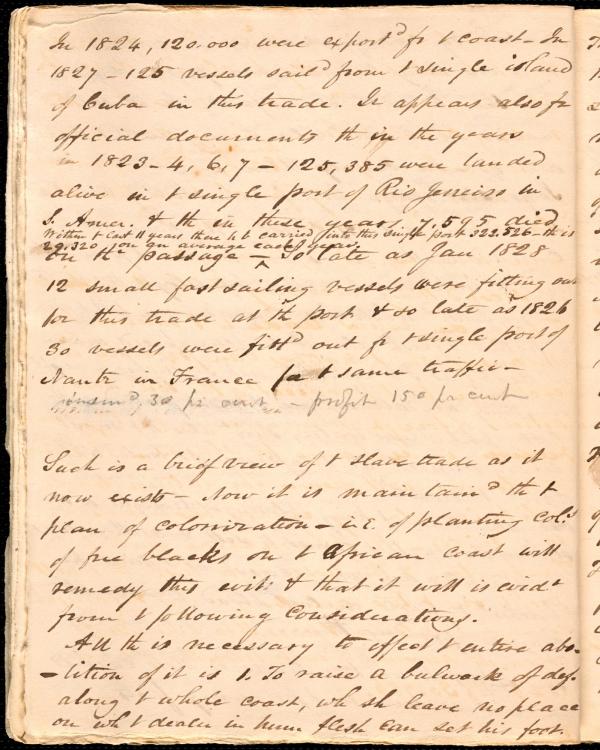 In 1824, 120.000 were export^d fr t coast - In
1827 - 125 vessels sail^d from t single island
of Cuba in this trade. It appears also fr
official documents th in the years
in 1823-4, 6, 7 - 125,385 were landed
alive in t single port of Rio Jeneiro in
S. Amer. & th in these years 7,595 died
Within t last 11 years there h b carried into this single port 322.526 - th is
29.320 on an average each year.
on the passage - So late as Jan 1828
12 small fast sailing vessels were fitting out
for this trade at th port & so late as 1826
30 vessels were fitt^d out fr t single port of
Nantz in France for t same traffic -
30 pr cent - profit 150 pr cent
Such is a brief view of t slave trade as it
now exists - Now it is maintain^d th t
plan of colonization - i.e. of planting col^s
of free blacks on t African coast will
remedy this evil & that it will is evid^t
from t following considerations.
All th is necessary to effect t entire abo-
-lition of it is 1. To raise a bulwark of def.
along t whole coast, wh sh leave no place
on wh t dealer in hum flesh can set his foot.